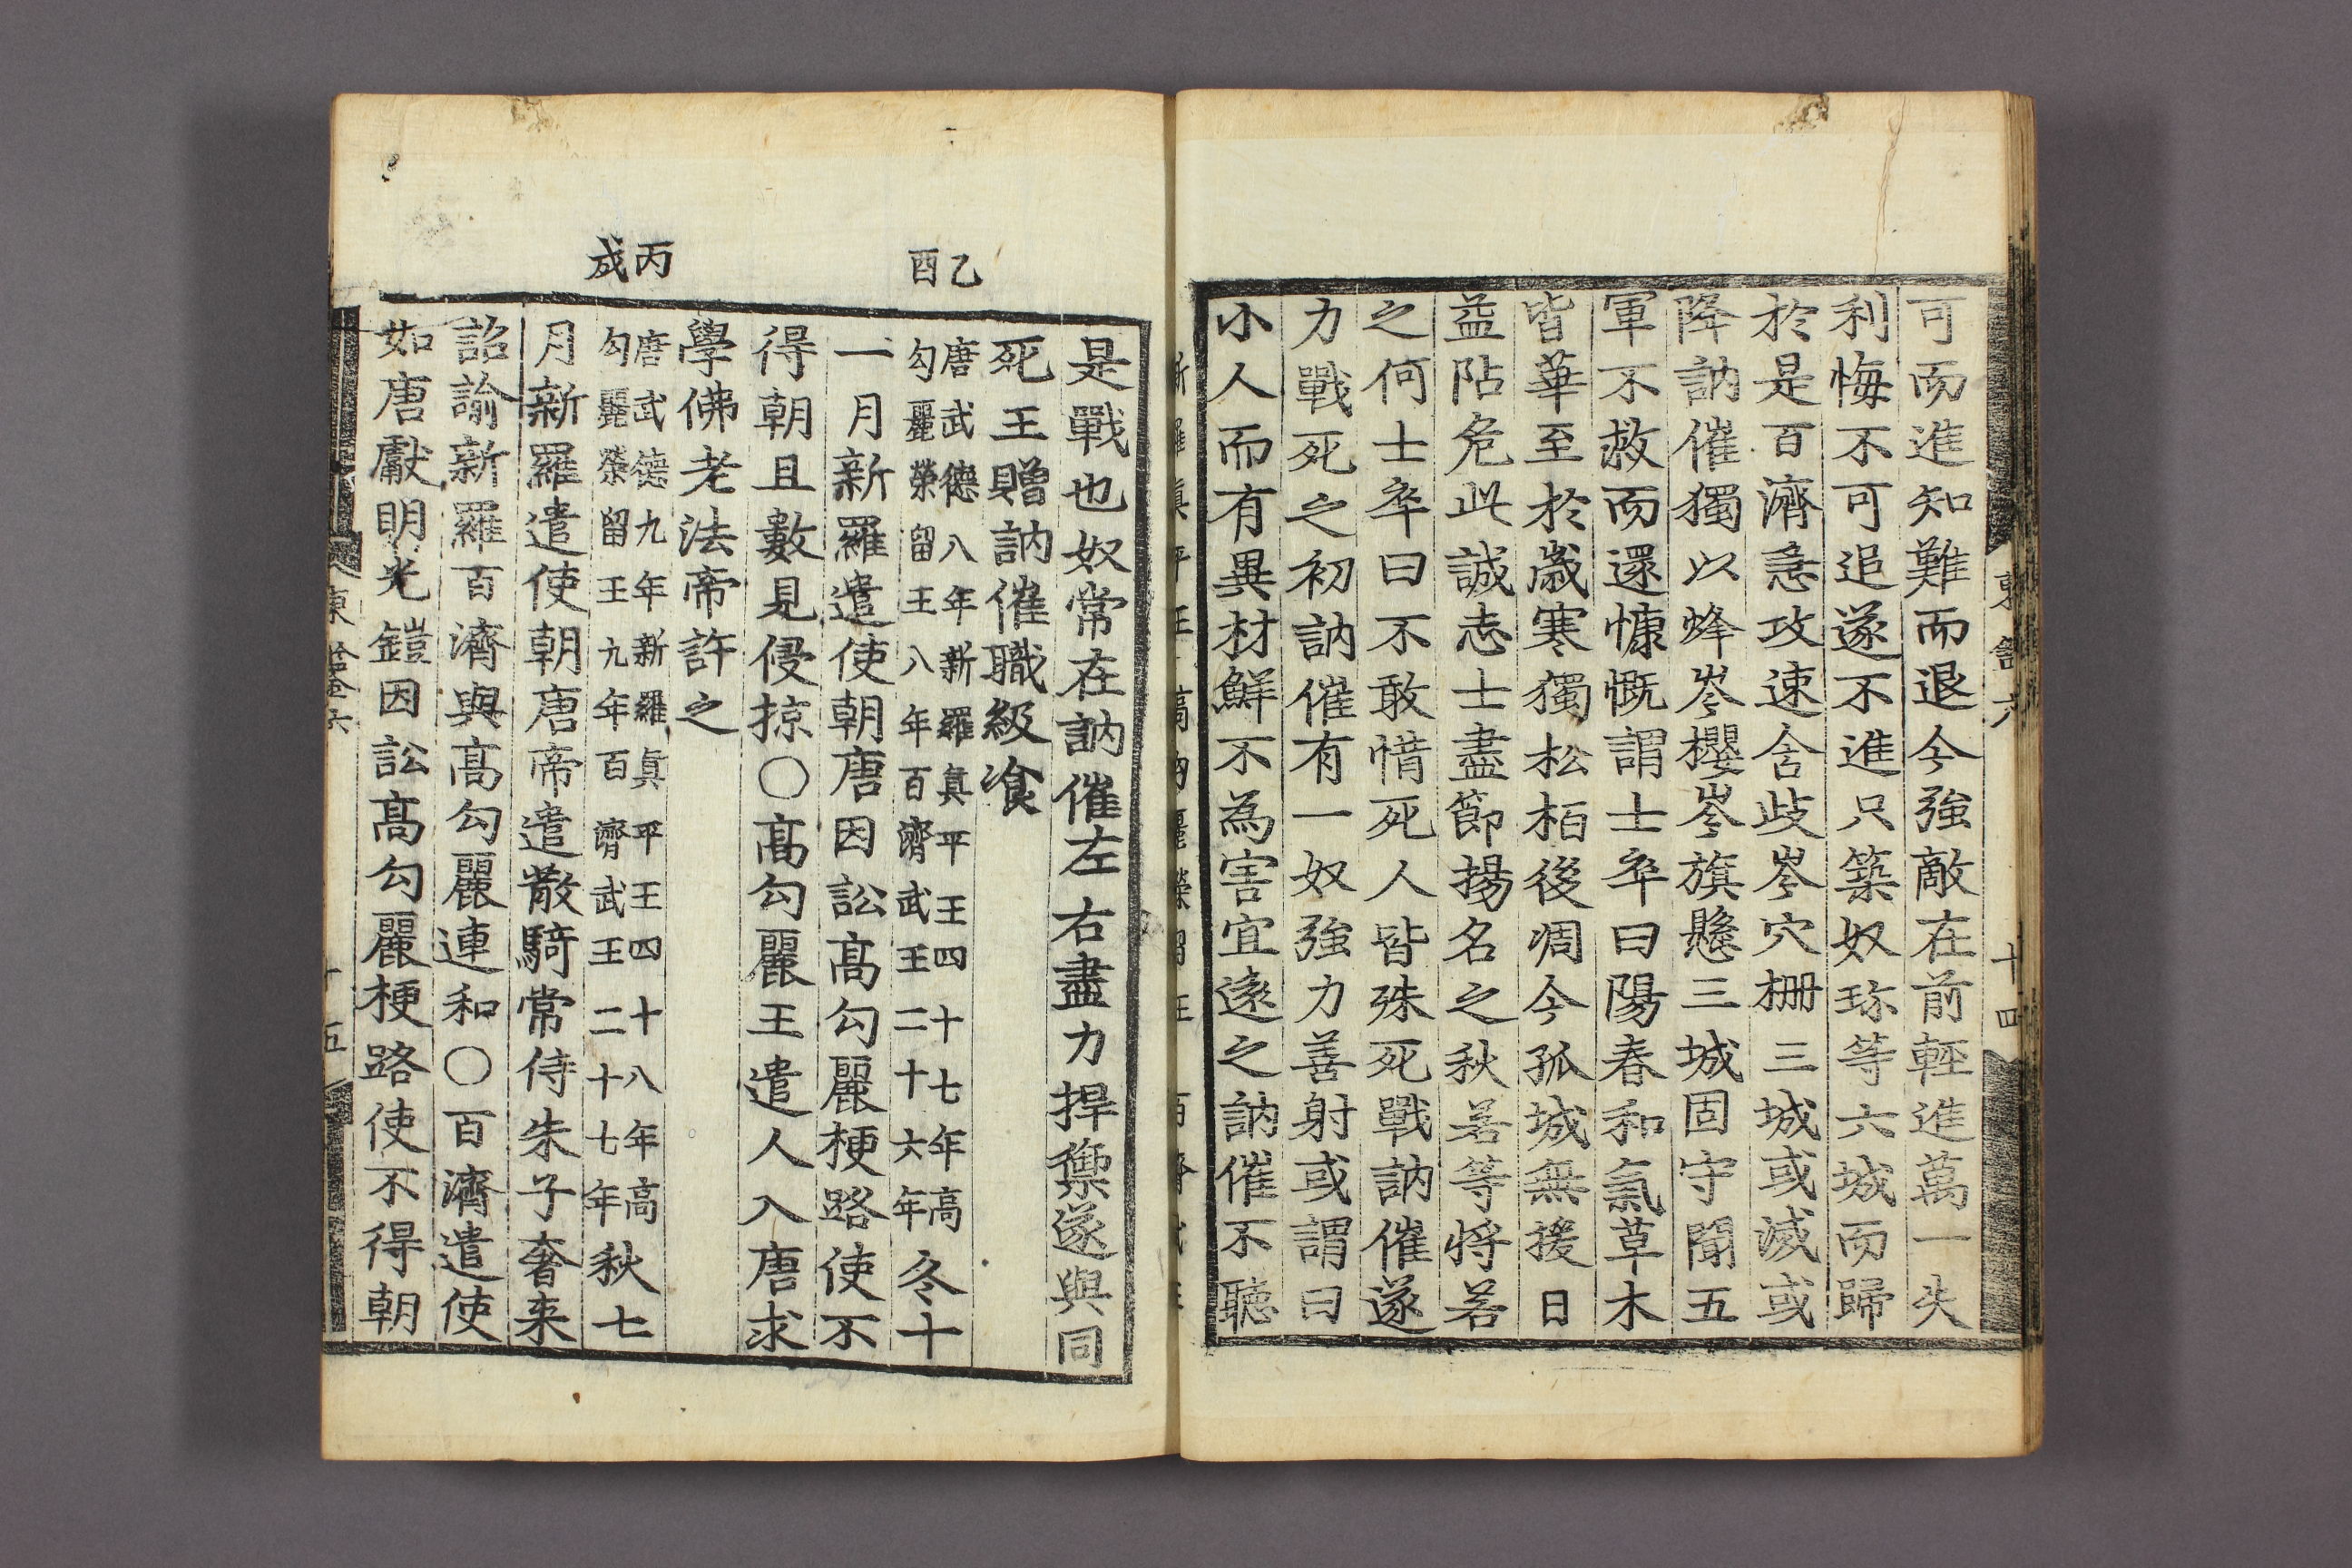 可而進知難而退今強敵在前輕進萬一失
利悔不可追遂不進只築奴珎等六城而歸
於是百濟急攻速含歧岑穴柵三城或滅或
降訥催獨以烽岑櫻岑旗懸三城固守聞五
軍不救而還慷慨謂士卒曰陽春和氣草木
皆華至於歲寒獨松栢後凋今孤城無援日
益阽危此誠志士盡節揚名之秋若等將若
之何士卒曰不敢惜死人皆殊死戰訥催遂
力戰死之初訥催有一奴強力善射或謂曰
小人而有異材鮮不為害宜遠之訥催不聽
東鑑六
十四
是戰也奴常在訥催左右盡力捍禦遂與同
死王贈訥催職級飡
乙酉
唐武德八年新羅真平王四十七年高
勾麗榮留王八年百濟武王二十六年
冬十
一月新羅遣使朝唐因訟高勾麗梗路使不
得朝且數見侵掠〇高勾麗王遣人入唐求
學佛老法帝許之
丙戌
唐武德九年新羅真平王四十八年高
勾麗榮留王九年百濟武王二十七年
秋七
月新羅遣使朝唐帝遣散騎常侍朱子奢来
詔諭新羅百濟與高勾麗連和〇百濟遣使
如唐獻明光鎧因訟高勾麗梗路使不得朝
十五